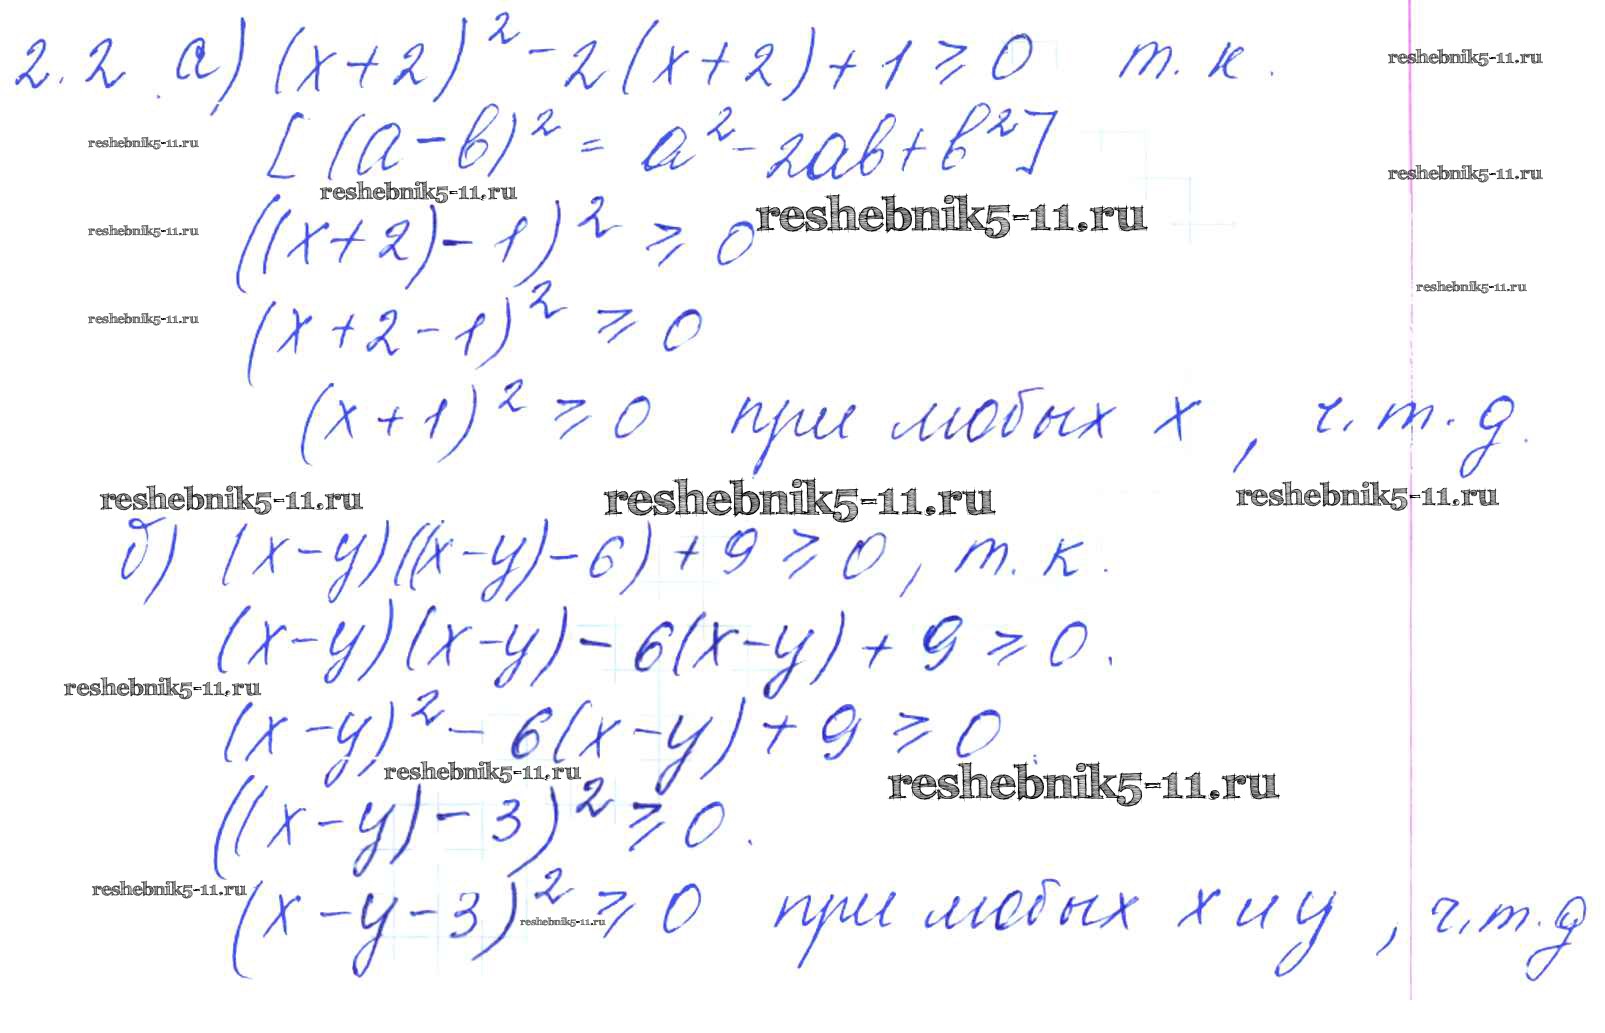 2.2 а) (x+2)² - 2(x+2) + 1 ⩾ 0 т. к.
reshebnik5-11.ru
[(a-b)² = a² - 2ab + b²]
reshebnik5-11.ru
reshebnik5-11.ru
reshebnik5-11.ru
reshebnik5-11.ru
reshebnik5-11.ru
((x+2)-1)² ⩾ 0
reshebnik5-11.ru
reshebnik5-11.ru
(x+2-1)² ⩾ 0
(x+1)² ⩾ 0 при любых x, ч.т.д.
reshebnik5-11.ru
reshebnik5-11.ru
reshebnik5-11.ru
б) (x-y)((x-y)-6) + 9 ⩾ 0, т. к.
(x-y)(x-y) - 6(x-y) + 9 ⩾ 0.
reshebnik5-11.ru
(x-y)² - 6(x-y) + 9 ⩾ 0
reshebnik5-11.ru
reshebnik5-11.ru
((x-y)-3)² ⩾ 0.
reshebnik5-11.ru
(x-y-3)² ⩾ 0 при любых x и y, ч.т.д
reshebnik5-11.ru